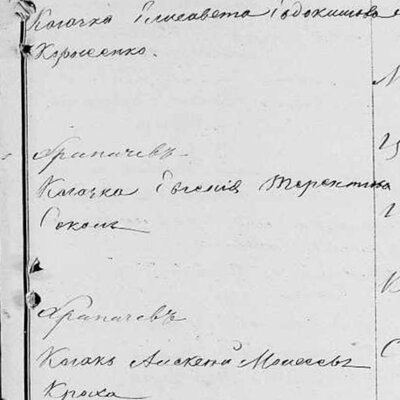 Казачка Елисавета Евдокимова
Хроменко.
Храпачевъ
Казачка Евгенія Терентiева
Соколъ
Храпачевъ
Казакъ Алексей Моисеевъ
Кроха